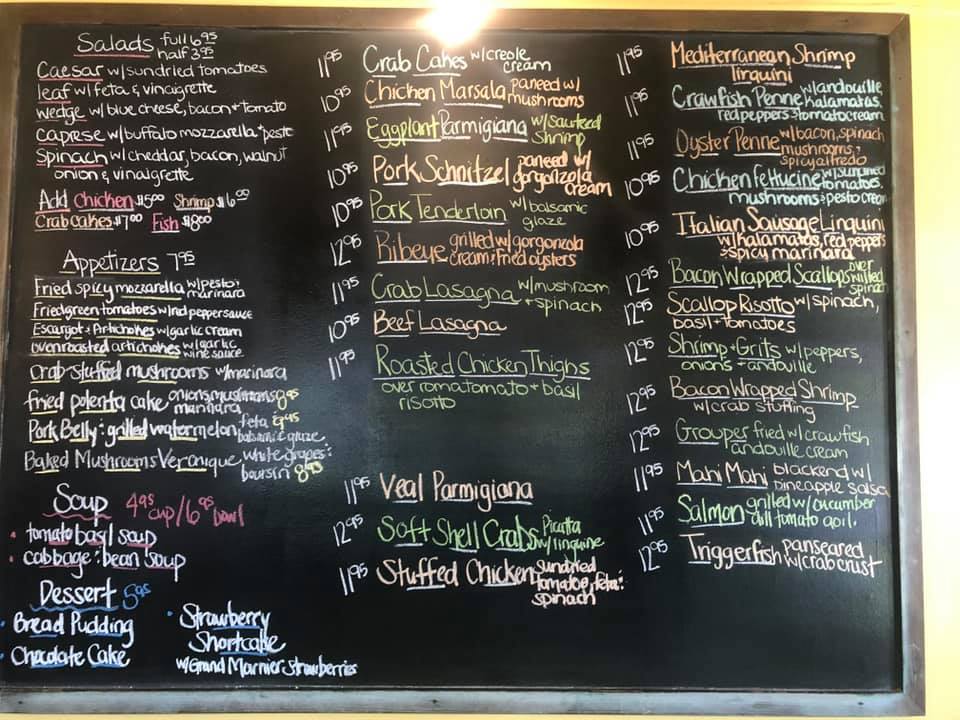 Salads full 6.95
half 3.95
Caesar w/sundried tomatoes
leaf w/feta & vinaigrette
wedge w/blue cheese, bacon + tomato
Caprese w/buffalo mozzarella + pesto
Spinach w/cheddar, bacon, walnut
onion & vinaigrette
Add Chicken $5.00 Shrimp $6.00
Crab Cakes $7.00 Fish $8.00
Appetizers 7.95
Fried spicy mozzarella w/pesto &
marinara
Fried green tomatoes w/red pepper sauce
Escargot & Artichokes w/garlic cream
oven roasted artichokes w/garlic
wine sauce
crab stuffed mushrooms w/marinara
fried polenta cake onions, mushrooms 8.95
marinara
Pork Belly & grilled watermelon feta 9.95
balsamic glaze
Baked Mushrooms Veronique white grapes &
boursin 8.95
Soup 4.95 cup/6.95 bowl
tomato basil soup
cabbage & bean soup
Dessert 5.95
Bread Pudding
Chocolate Cake
Strawberry
Shortcake
w/Grand Marnier Strawberries
11.95 Crab Cakes w/creole
cream
10.95 Chicken Marsala paneed w/
mushrooms
11.95 Eggplant Parmigiana w/sauteed
Shrimp
10.95 Pork Schnitzel paneed w/
gorgonzola
cream
10.95 Pork Tenderloin w/balsamic
glaze
12.95 Ribeye grilled w/gorgonzola
cream & fried oysters
11.95 Crab Lasagna w/mushroom
+ spinach
10.95 Beef Lasagna
11.95 Roasted Chicken Thighs
over roma tomato + basil
risotto
11.95 Veal Parmigiana
12.95 Soft Shell Crabs Picatta
w/linguine
11.95 Stuffed Chicken sundried
tomatoe, feta &
spinach
11.95 Mediterranean Shrimp
linguini
11.95 Crawfish Penne w/andouille
kalamatas,
red peppers & tomato cream
11.95 Oyster Penne w/bacon, spinach
mushrooms &
spicy alfredo
10.95 Chicken fettucine w/sundried
tomatoes,
mushrooms & pesto cream
10.95 Italian Sausage Linguini
w/kalamatas, red peppers
& spicy marinara
12.95 Bacon Wrapped Scallops over
wilted
spinach
12.95 Scallop Risotto w/spinach,
basil + tomatoes
12.95 Shrimp + Grits w/peppers,
onions + andouille
12.95 Bacon Wrapped Shrimp
w/crab stuffing
12.95 Grouper fried w/crawfish
andouille cream
11.95 Mahi Mahi blackend w/
pineapple salsa
11.95 Salmon grilled w/cucumber
dill tomato aoili
12.95 Triggerfish panseared
w/crab crust